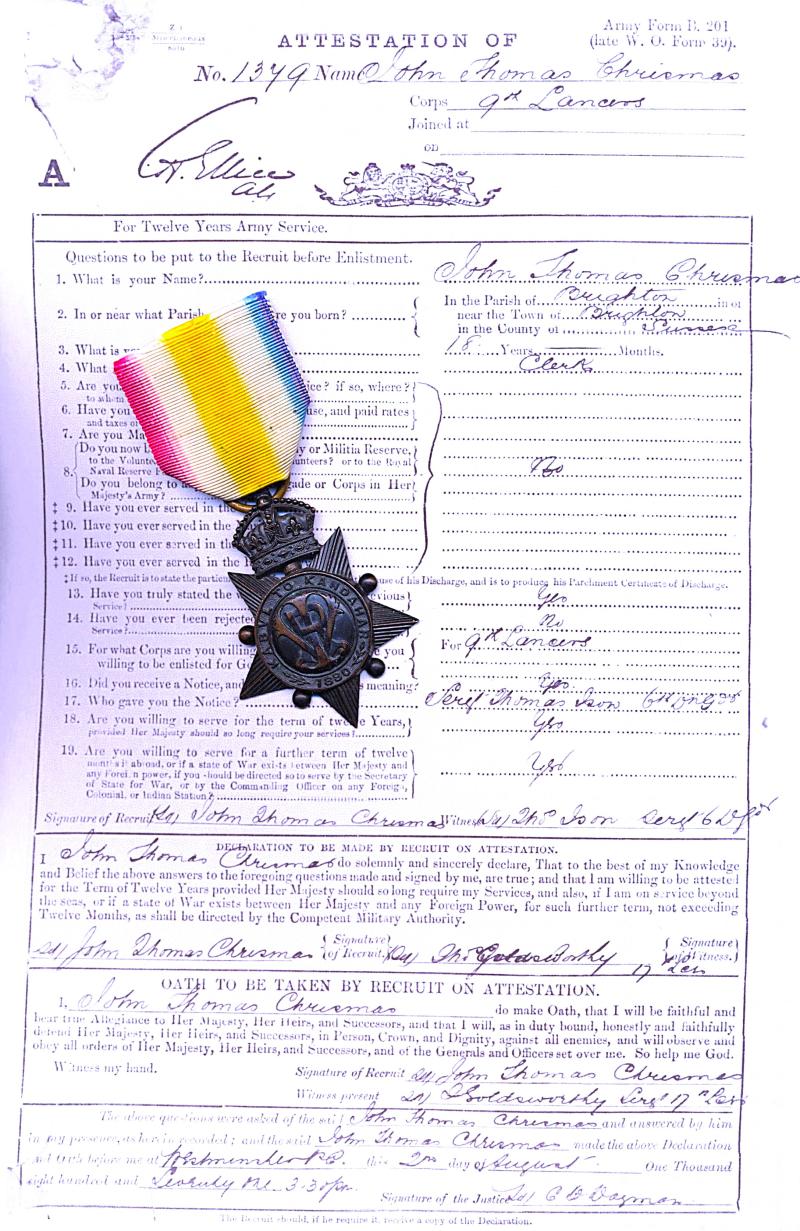 Army Form B. 201
(late W. O. Form 39).
ATTESTATION OF
No. 1379 Name John Thomas Chrismas
Corps 9th Lancers
Joined at
on
A
For Twelve Years Army Service.
Questions to be put to the Recruit before Enlistment.
1. What is your Name?
John Thomas Chrismas
2. In or near what Parish
re you born?
In the Parish of Brighton in or
near the Town of Brighton
in the County of Sussex
3. What is
18 Years Months.
4. What
Clerk
5. Are you
ice? if so, where?
to whom
6. Have you
use, and paid rates
and taxes
7. Are you Ma
Do you now
y or Militia Reserve,
to the Volunte
unteers? or to the Royal
8. Naval Reserve F
No
Do you belong to
gade or Corps in Her
Majesty's Army?
‡ 9. Have you ever served in the
‡ 10. Have you ever served in the
‡ 11. Have you ever served in the
‡ 12. Have you ever served in the
‡ If so, the Recruit is to state the partic
use of his Discharge, and is to produce his Parchment Certificate of Discharge.
13. Have you truly stated the
evious
Service?
Yes
14. Have you ever been rejected
Service?
No
15. For what Corps are you willing
willing to be enlisted for Ge
For 9th Lancers
16. Did you receive a Notice, and
meaning?
Yes
17. Who gave you the Notice?
Sergt Thomas Ison 6th Dn Gds
18. Are you willing to serve for the term of twelve Years,
provided Her Majesty should so long require your services?
Yes
19. Are you willing to serve for a further term of twelve
months if abroad, or if a state of War exists between Her Majesty and
any Foreign power, if you should be directed so to serve by the Secretary
of State for War, or by the Commanding Officer on any Foreign,
Colonial, or Indian Station?
Yes
KABUL TO KANDAHAR
1880
Signature of Recruit Sd/ John Thomas Chrismas Witness Sd/ Thos Ison Sergt 6 D Gds
DECLARATION TO BE MADE BY RECRUIT ON ATTESTATION.
I John Thomas Chrismas do solemnly and sincerely declare, That to the best of my Knowledge
and Belief the above answers to the foregoing questions made and signed by me, are true; and that I am willing to be attested
for the Term of Twelve Years provided Her Majesty should so long require my Services, and also, if I am on service beyond
the seas, or if a state of War exists between Her Majesty and any Foreign Power, for such further term, not exceeding
Twelve Months, as shall be directed by the Competent Military Authority.
Sd/ John Thomas Chrismas { Signature of Recruit. } Sd/ Thos Goldsworthy 17 Lrs { Signature of Witness. }
OATH TO BE TAKEN BY RECRUIT ON ATTESTATION.
I, John Thomas Chrismas do make Oath, that I will be faithful and
bear true Allegiance to Her Majesty, Her Heirs, and Successors, and that I will, as in duty bound, honestly and faithfully
defend Her Majesty, Her Heirs, and Successors, in Person, Crown, and Dignity, against all enemies, and will observe and
obey all orders of Her Majesty, Her Heirs, and Successors, and of the Generals and Officers set over me. So help me God.
Witness my hand.
Signature of Recruit Sd/ John Thomas Chrismas
Witness present Sd/ T Goldsworthy Sergt 17th Lrs
The above questions were asked of the said John Thomas Chrismas and answered by him
in my presence, as herein recorded; and the said John Thomas Chrismas made the above Declaration
and Oath before me at Westminster P.C. this 2nd day of August One Thousand
eight hundred and Seventy 3.30 pm
Signature of the Justice Sd/ C O Dayman
The Recruit should, if he require it, receive a copy of the Declaration.